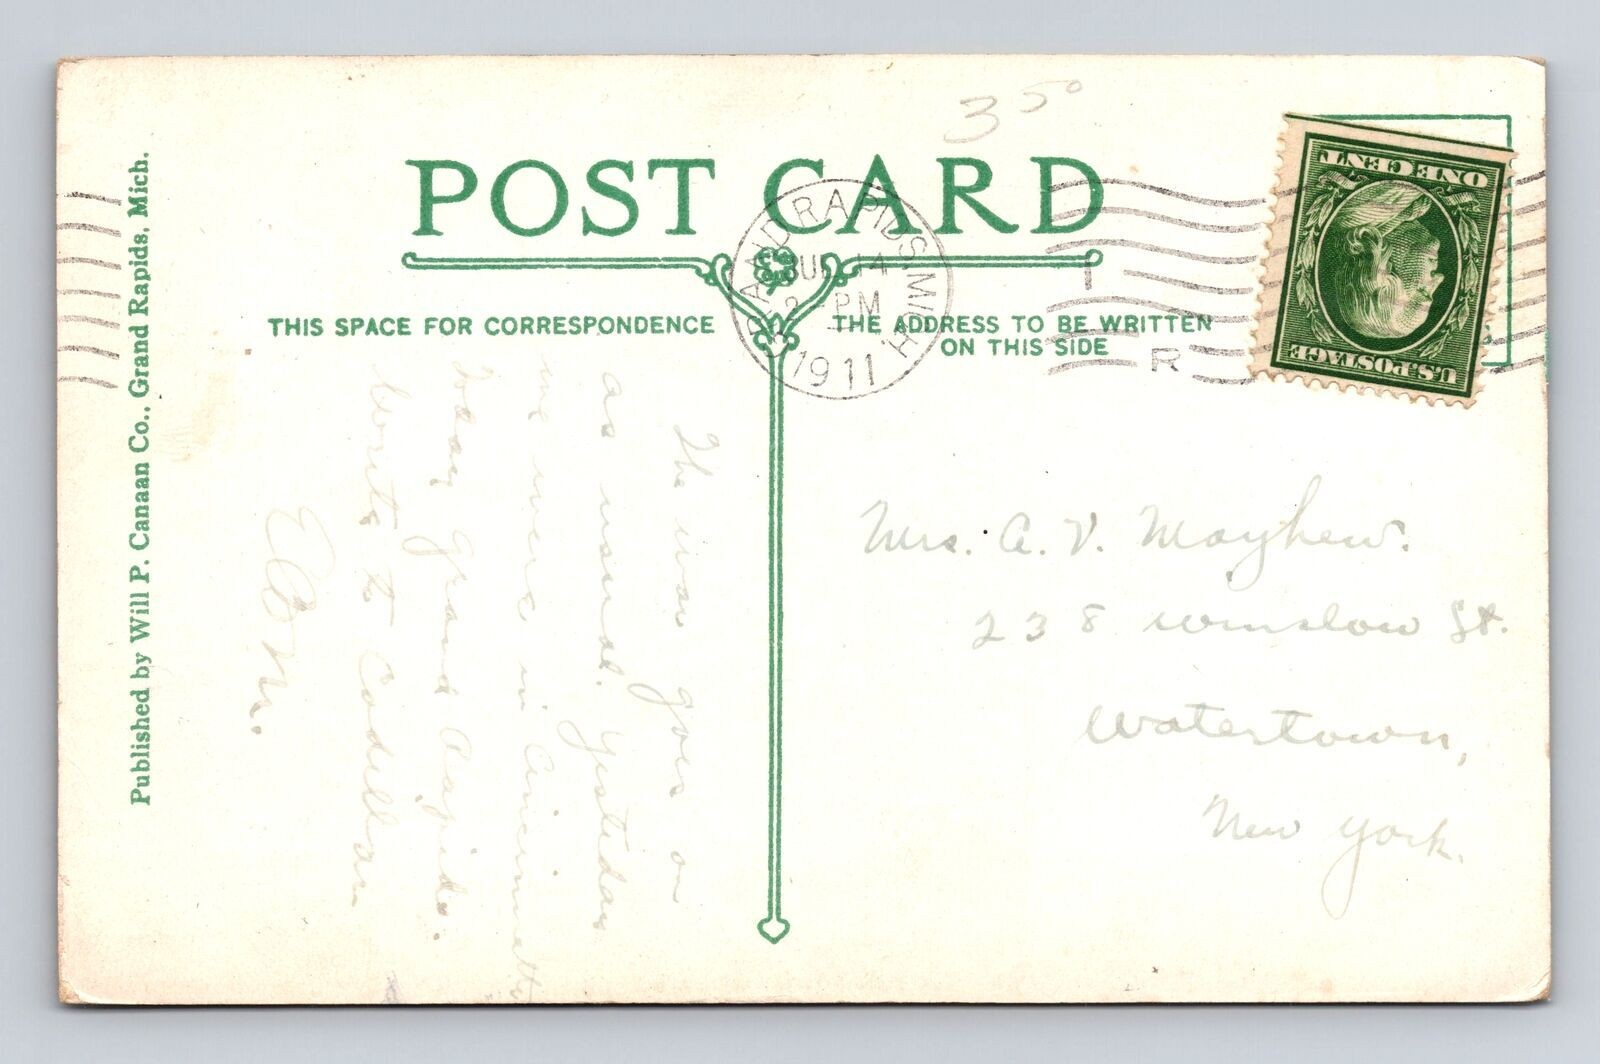 35⁰
POST CARD
GRAND RAPIDS, MICH.
14
2 PM
1911
1
R
ONE CENT
U.S. POSTAGE
THIS SPACE FOR CORRESPONDENCE
THE ADDRESS TO BE WRITTEN
ON THIS SIDE
Published by Will P. Canaan Co., Grand Rapids, Mich.
The war goes on
as usual. Yesterday
we were in Cincinnatti
today Grand Rapids.
write to Cadillac
Mrs. A. V. Mayhew.
238 Winslow St.
Watertown,
New York.